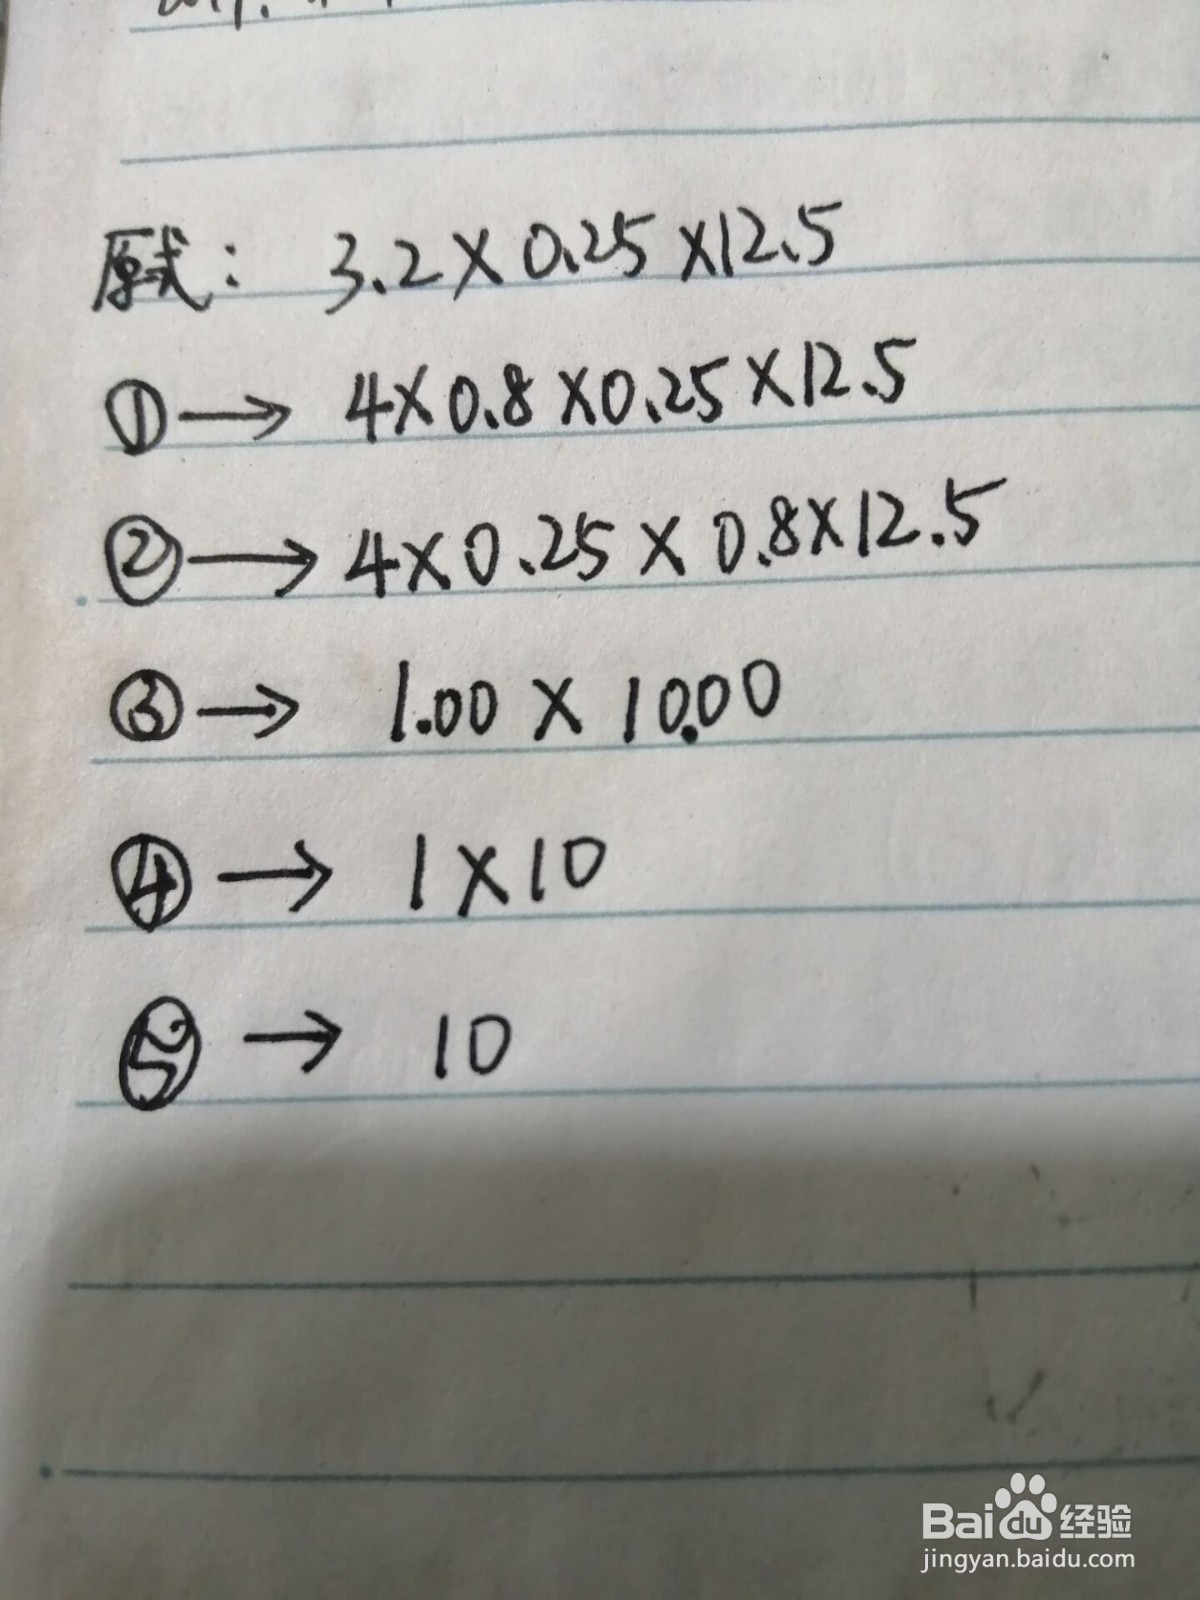 原式: 3.2×0.25×12.5
①→ 4×0.8×0.25×12.5
②→ 4×0.25×0.8×12.5
③→ 1.00×10.00
④→ 1×10
⑤→ 10
Baidu经验
jingyan.baidu.com